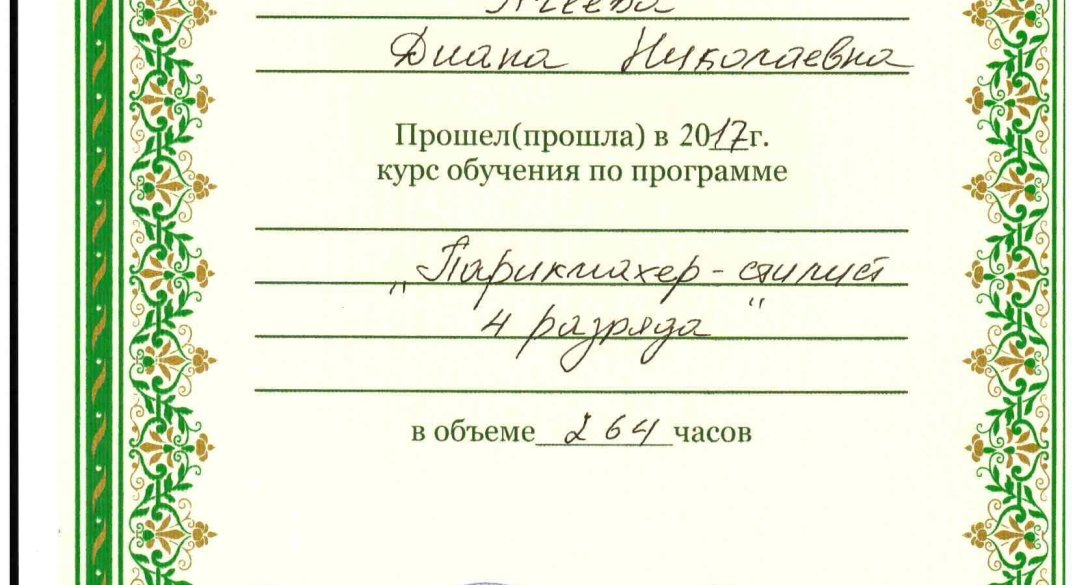 Диана Николаевна
Прошел(прошла) в 2017г.
курс обучения по программе
„Парикмахер-стилист
4 разряда"
в объеме 264 часов